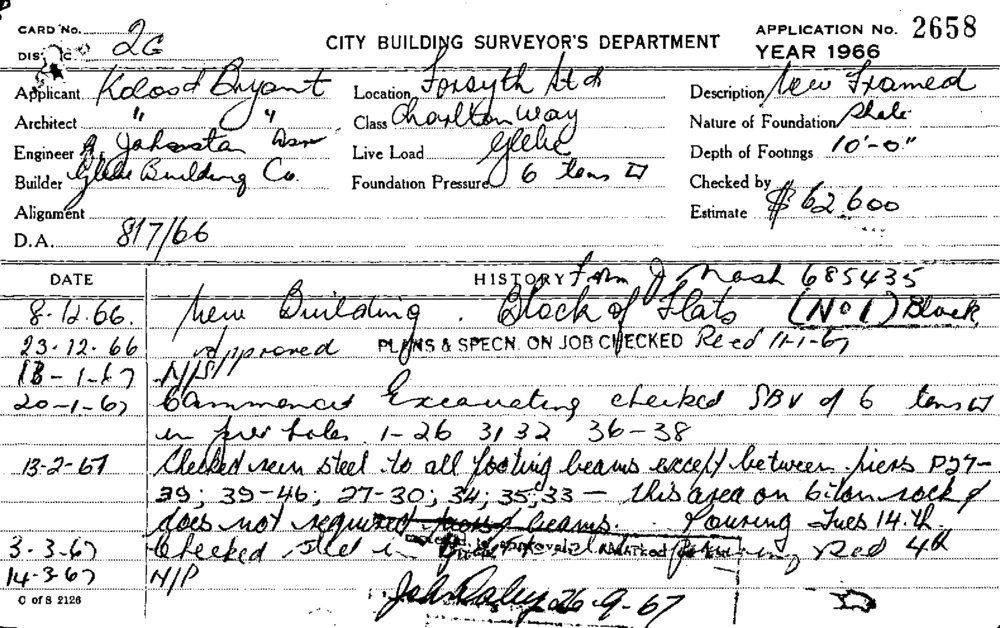 CARD No. 2G
DIS C.
CITY BUILDING SURVEYOR'S DEPARTMENT
APPLICATION No. 2658
YEAR 1966
Applicant Kolos & Bryant
Location Forsyth St &
Description New Framed
Architect " "
Class Charlton Way
Nature of Foundation Shale
Engineer A. Johnston
Live Load Glebe
Depth of Footings 10'-0"
Builder Glebe Building Co.
Foundation Pressure 6 tons
Checked by
Alignment
Estimate $ 62,600
D.A. 817/66
DATE
HISTORY J Nash 685435
8.12.66. New Building. Block of Flats (No 1) Block
23.12.66 Approved PLANS & SPECN. ON JOB CHECKED 11-1-67
18-1-67 N/S
20-1-67 Commenced Excavating checked SBV of 6 tons
in pier holes 1-26 31 32 36-38
13-2-67 Checked rein steel to all footing beams except between piers P27-
29; 39-46; 27-30; 34; 35; 33 - this area on 6 ton rock &
does not require beams. Pouring Tues 14.th
3-3-67 Checked steel in
14-3-67 N/P
26-9-67
C of S 2126